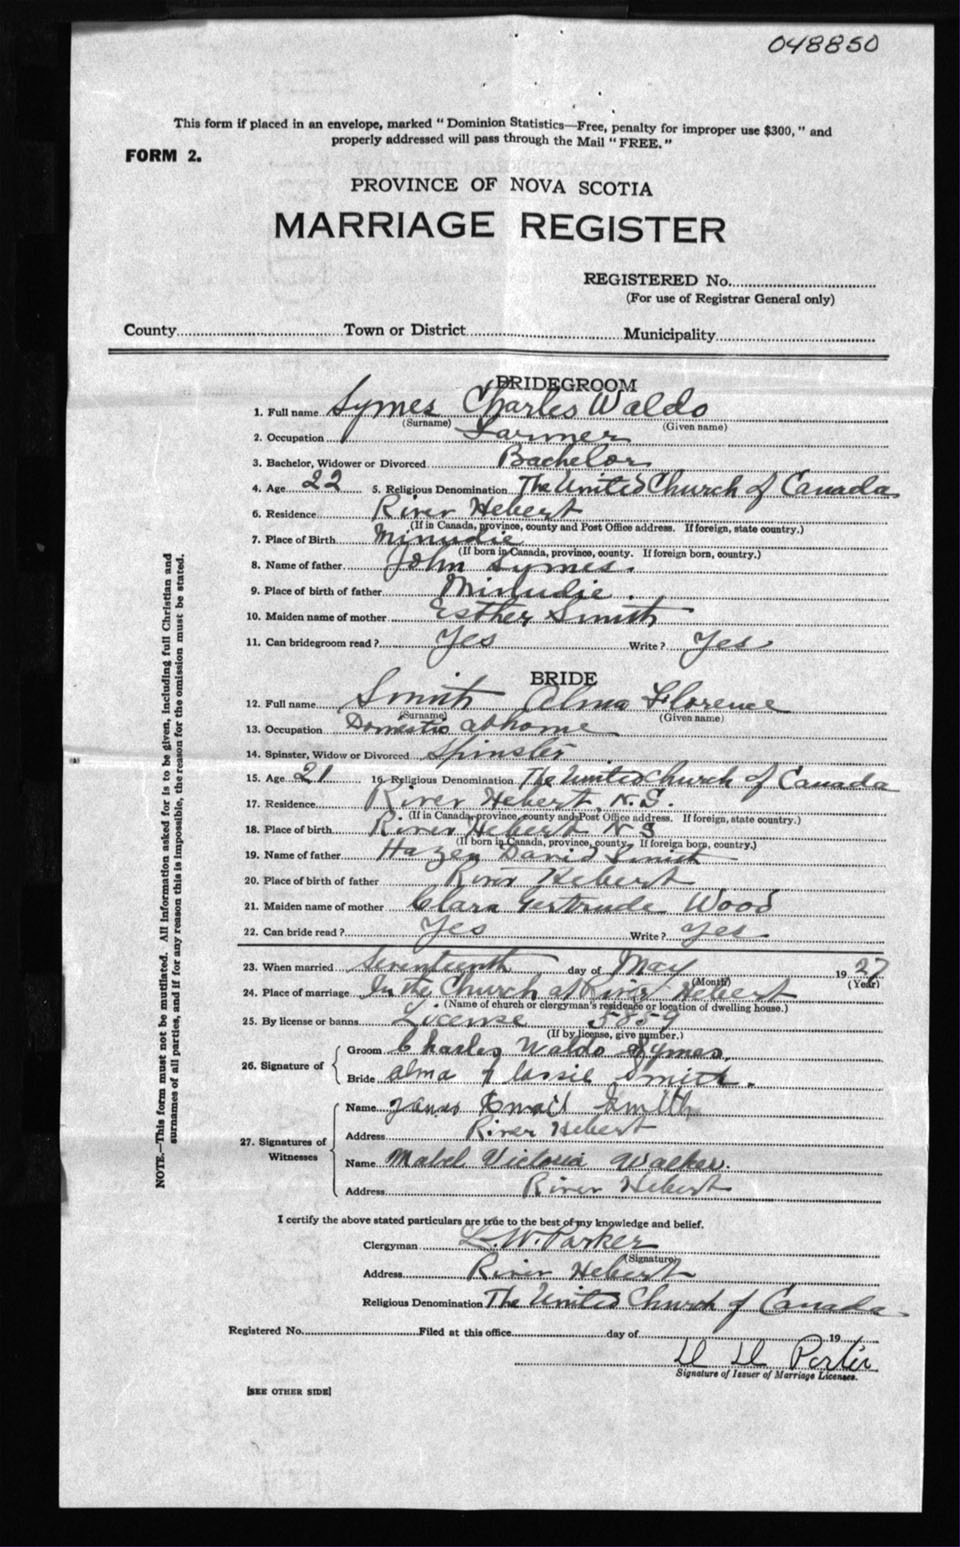 048850
This form if placed in an envelope, marked "Dominion Statistics—Free, penalty for improper use $300," and
properly addressed will pass through the Mail "FREE."
FORM 2.
PROVINCE OF NOVA SCOTIA
MARRIAGE REGISTER
REGISTERED No.
(For use of Registrar General only)
County Town or District Municipality
BRIDEGROOM
1. Full name Symes Charles Waldo
(Surname) (Given name)
2. Occupation Farmer
3. Bachelor, Widower or Divorced Bachelor
4. Age 22 5. Religious Denomination The United Church of Canada
6. Residence River Hebert
(If in Canada, province, county and Post Office address. If foreign, state country.)
7. Place of Birth Minudie
(If born in Canada, province, county. If foreign born, country.)
8. Name of father John Symes.
9. Place of birth of father Minudie.
10. Maiden name of mother Esther Smith
11. Can bridegroom read? Yes Write? Yes
BRIDE
12. Full name Smith Alma Florence
(Surname) (Given name)
13. Occupation Domestic at home
14. Spinster, Widow or Divorced Spinster
15. Age 21 16. Religious Denomination The United Church of Canada
17. Residence River Hebert, N.S.
(If in Canada, province, county and Post Office address. If foreign, state country.)
18. Place of birth River Hebert N S
(If born in Canada, province, county. If foreign born, country.)
19. Name of father Hazen David Smith
20. Place of birth of father River Hebert
21. Maiden name of mother Clara Gertrude Wood
22. Can bride read? Yes Write? Yes
23. When married Seventeenth day of May 1927
(Month) (Year)
24. Place of marriage In the Church at River Hebert
(Name of church or clergyman's residence or location of dwelling house.)
25. By license or banns License 5859
(If by license, give number.)
26. Signature of
Groom Charles Waldo Symes.
Bride Alma Smith.
27. Signatures of Witnesses
Name Smith
Address River Hebert
Name Mabel Victoria Walker.
Address River Hebert
I certify the above stated particulars are true to the best of my knowledge and belief.
Clergyman L. W. Parker
(Signature)
Address River Hebert
Religious Denomination The United Church of Canada
Registered No. Filed at this office day of 19
Porter
Signature of Issuer of Marriage Licenses.
[SEE OTHER SIDE]
NOTE.—This form must not be mutilated. All information asked for is to be given, including full Christian and
surnames of all parties, and if for any reason this is impossible, the reason for the omission must be stated.